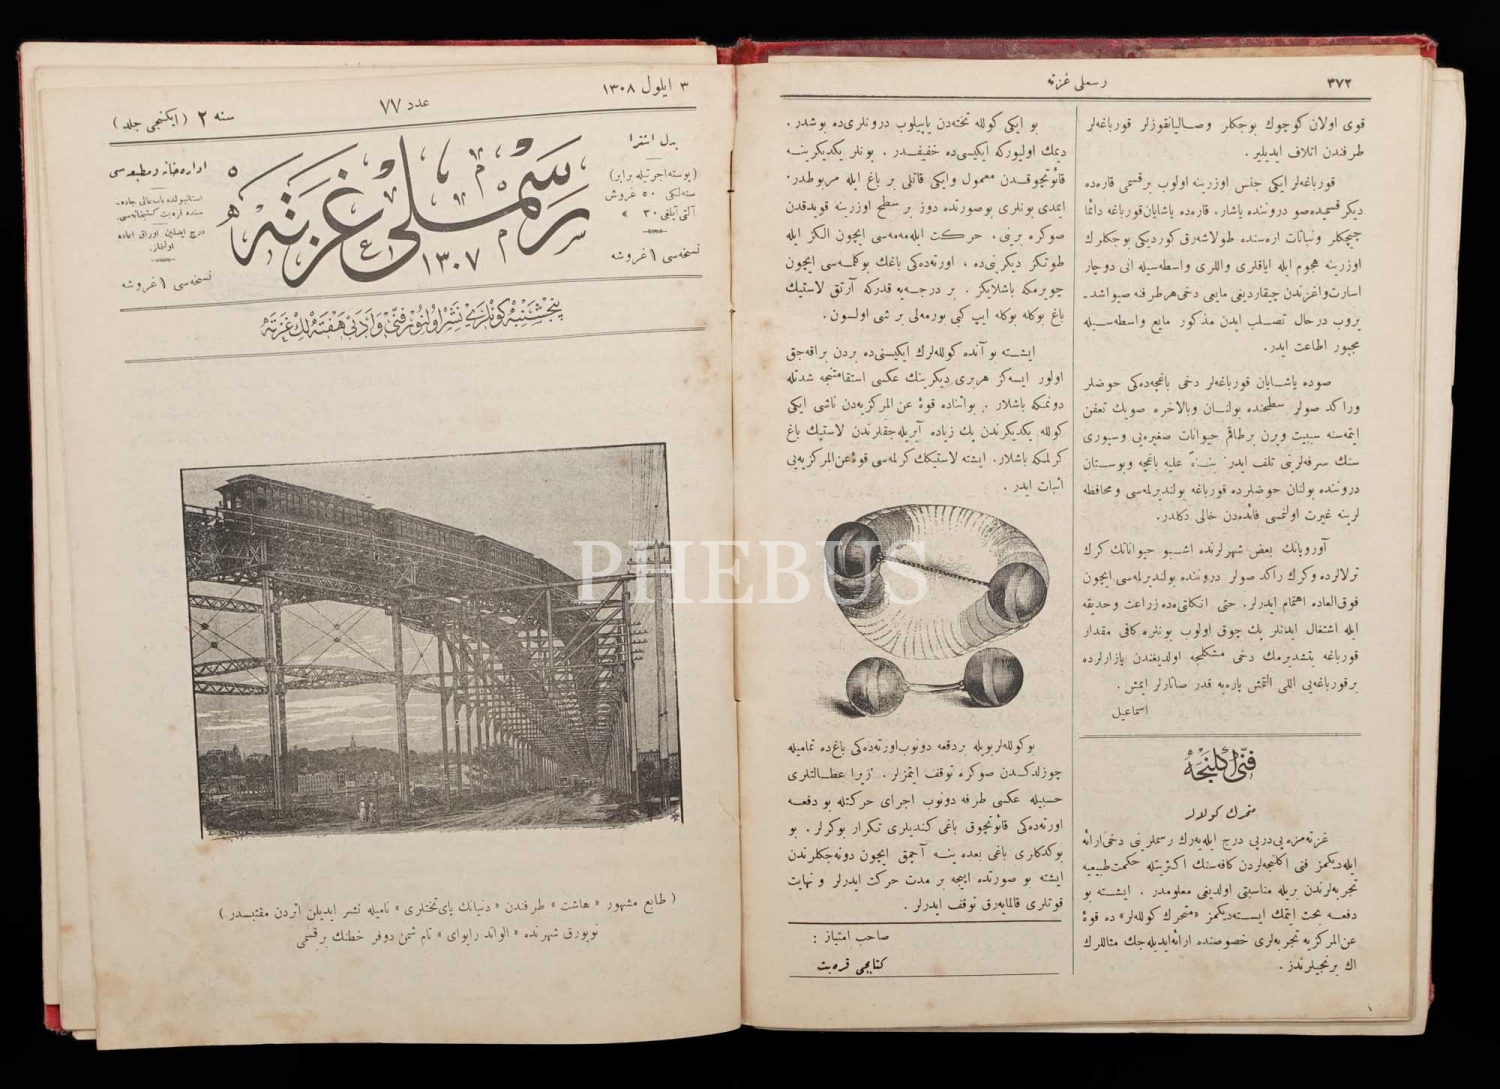 ٣ ایلول ١٣٠٨
عدد ٧٧
سنه ٢ (ایکنجی جلد)
بدل اشترا
(پوسته اجرتیله برابر)
سنه‌لکی ٥٠ غروش
آلتی آیلغی ٣٠ »
نسخه‌سی ١ غروشه
رسملی غزته
١٣٠٧
اداره‌خانه و مطبعه‌سی
استانبولده باب عالی جاده‌
سنده قره‌بت کتبخانه‌سی
درج ایدلمین اوراق اعاده
اولنماز
نسخه‌سی ١ غروشه
پنجشنبه کونلری نشر اولنور فنی و ادبی هفته‌لك غزته
(طابع مشهور «هاشت» طرفندن «دنیانك پای‌تختلری» نامیله نشر ایدیلن اثردن مقتبسدر)
نویورق شهرنده «الواتد رایوای» نام شمن دوفر خطنك بر قسمی
PHEBUS
رسملی غزته
٣٧٢
قوی اولان کوچوك بوجکلر وصالیانقوزلر قورباغه‌لر
طرفندن اتلاف ایدیلیر.
قورباغه‌لر ایکی جنس اوزرینه اولوب بر قسمی قاره‌ده
دیکر قسمیده صو دروننده یاشار. قاره‌ده یاشایان قورباغه دائما
چیچکلر ونباتات اره‌سنده طولاشه‌رق کوردیکی بوجکلرك
اوزرینه هجوم ایله ایاقلری واللری واسطه‌سیله انی دوچار
اسارت واغزندن چیقاردیغی مایعی دخی هر طرفنه صیواشد-
یروب درحال تصلب ایدن مذکور مایع واسطه‌سیله
مجبور اطاعت ایدر.
صوده یاشایان قورباغه‌لر دخی باغچه‌ده‌کی حوضلر
وراکد صولر سطحنده بولنان وبالاخره صویك تعفن
ایتمه‌سنه سببیت ویرن برطاقم حیوانات صغیره‌یی وسیوری
سنك سرفه‌لرینی تلف ایدر. بناءً علیه باغچه وبوستان
دروننده بولنان حوضلرده قورباغه بولندیرلمه‌سی ومحافظه
لرینه غیرت اولنمسی فائده‌دن خالی دکلدر.
آوروپانك بعض شهرلرنده اشبو حیواناتك کرك
ترلالرده وکرك راکد صولر دروننده بولندیرلمه‌سی ایچون
فوق‌العاده اهتمام ایدرلر. حتی انکلتره‌ده زراعت وحدیقه
ایله اشتغال ایدنلر پك چوق اولوب بونلره کافی مقدار
قورباغه یتشدیرمك دخی مشکلجه اولدیغندن پازارلرده
بر قورباغه‌یی اللی التمش پاره‌یه قدر صاتارلر ایمش.
اسماعیل
فنی اکلنجه
متحرك کوللر
غزته‌مزه پی‌درپی درج ایله‌یه‌رك رسملرینی دخی ارائه
ایله‌دیکمز فنی اکلنجه‌لردن کافه‌سنك اکثریتله حکمت طبیعیه
تجربه‌لرندن بریله مناسبتی اولدیغی معلومدر. ایشته بو
دفعه بحث ایتمك ایسته‌دیکمز «متحرك کولله‌لر» ده قوهٔ
عن‌المرکزیه تجربه‌لری خصوصنده ارائه ایدیله‌جك مثاللرك
اك برنجیلرندندر.
بو ایکی کولله تخته‌دن یاپیلوب درونلری‌ده بوشدر.
دیمك اولیورکه ایکیسی‌ده خفیفدر. بونلر یکدیکرینه
قائوتچوقدن معمول وایکی قاتلی بر باغ ایله مربوطدر.
ایمدی بونلری بو صورتده دوز بر سطح اوزرینه قویدقدن
صوکره برینی، حرکت ایله‌مه‌مه‌سی ایچون الکز ایله
طوتکز دیکرینی‌ده، اورته‌ده‌کی باغك بوکلمه‌سی ایچون
چویرمکه باشلایکز. بر درجه‌یه قدرکه آرتق لاستیك
باغ بوکله بوکله ایپ کبی بورمه‌لی بر شی اولسون.
ایشته بو آنده کولله‌لرك ایکیسنی‌ده بردن براقه‌جق
اولور ایسه‌کز هربری دیکرینك عکسی استقامتنجه شدتله
دونمکه باشلار. بواثناده قوهٔ عن المرکزیه‌دن ناشی ایکی
کولله یکدیکرندن پك زیاده آیریله‌جقلرندن لاستیك باغ
کرلمکه باشلار. ایشته لاستیکك کرلمه‌سی قوهٔ عن‌المرکزیه‌یی
اثبات ایدر.
بو کولله‌لر بویله بردفعه دونوب اورته‌ده‌کی باغ‌ده تمامیله
چوزلدکدن صوکره توقف ایتمزلر. زیرا عطالتلری
حسبیله عکسی طرفه دونوب اجرای حرکتله بو دفعه
اورته‌ده‌کی قائوتچوق باغی کندیلری تکرار بوکرلر. بو
بوکدکلری باغی بعده ینه آچمق ایچون دونه‌جکلرندن
ایشته بو صورتده اپیجه بر مدت حرکت ایدرلر و نهایت
قوتلری قالمایه‌رق توقف ایدرلر.
صاحب امتیاز :
کتابجی قره‌بت